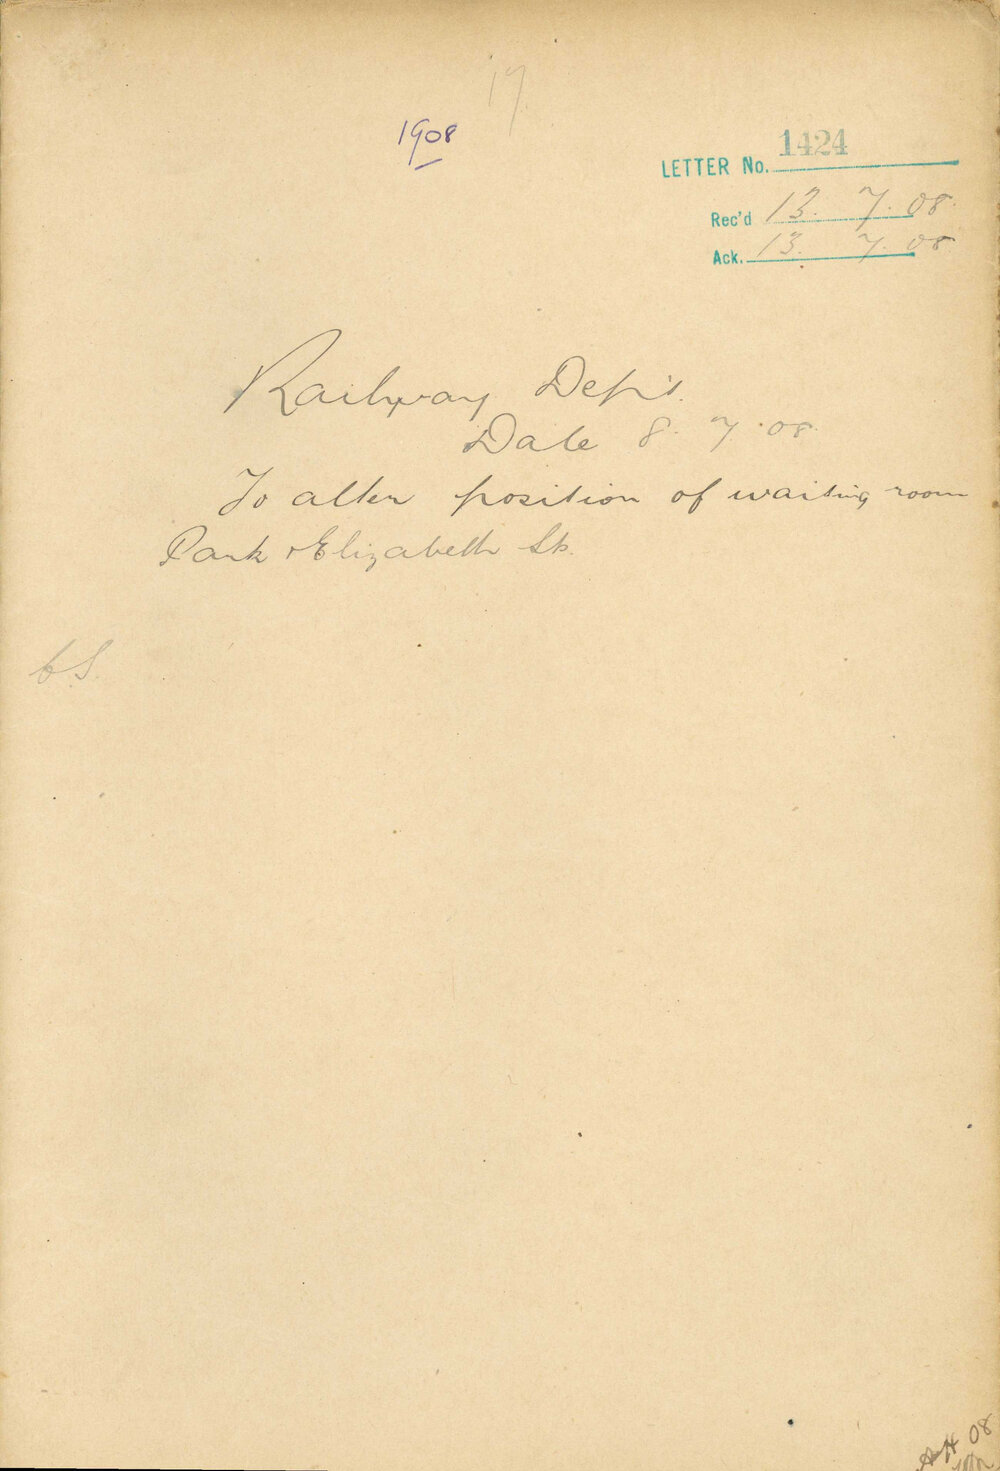 17.
1908
LETTER No. 1424
Rec'd 13. 7. 08.
Ack. 13. 7. 08
Railway Dept.
Date 8. 7. 08
To alter position of waiting room
Park & Elizabeth Sts.
08